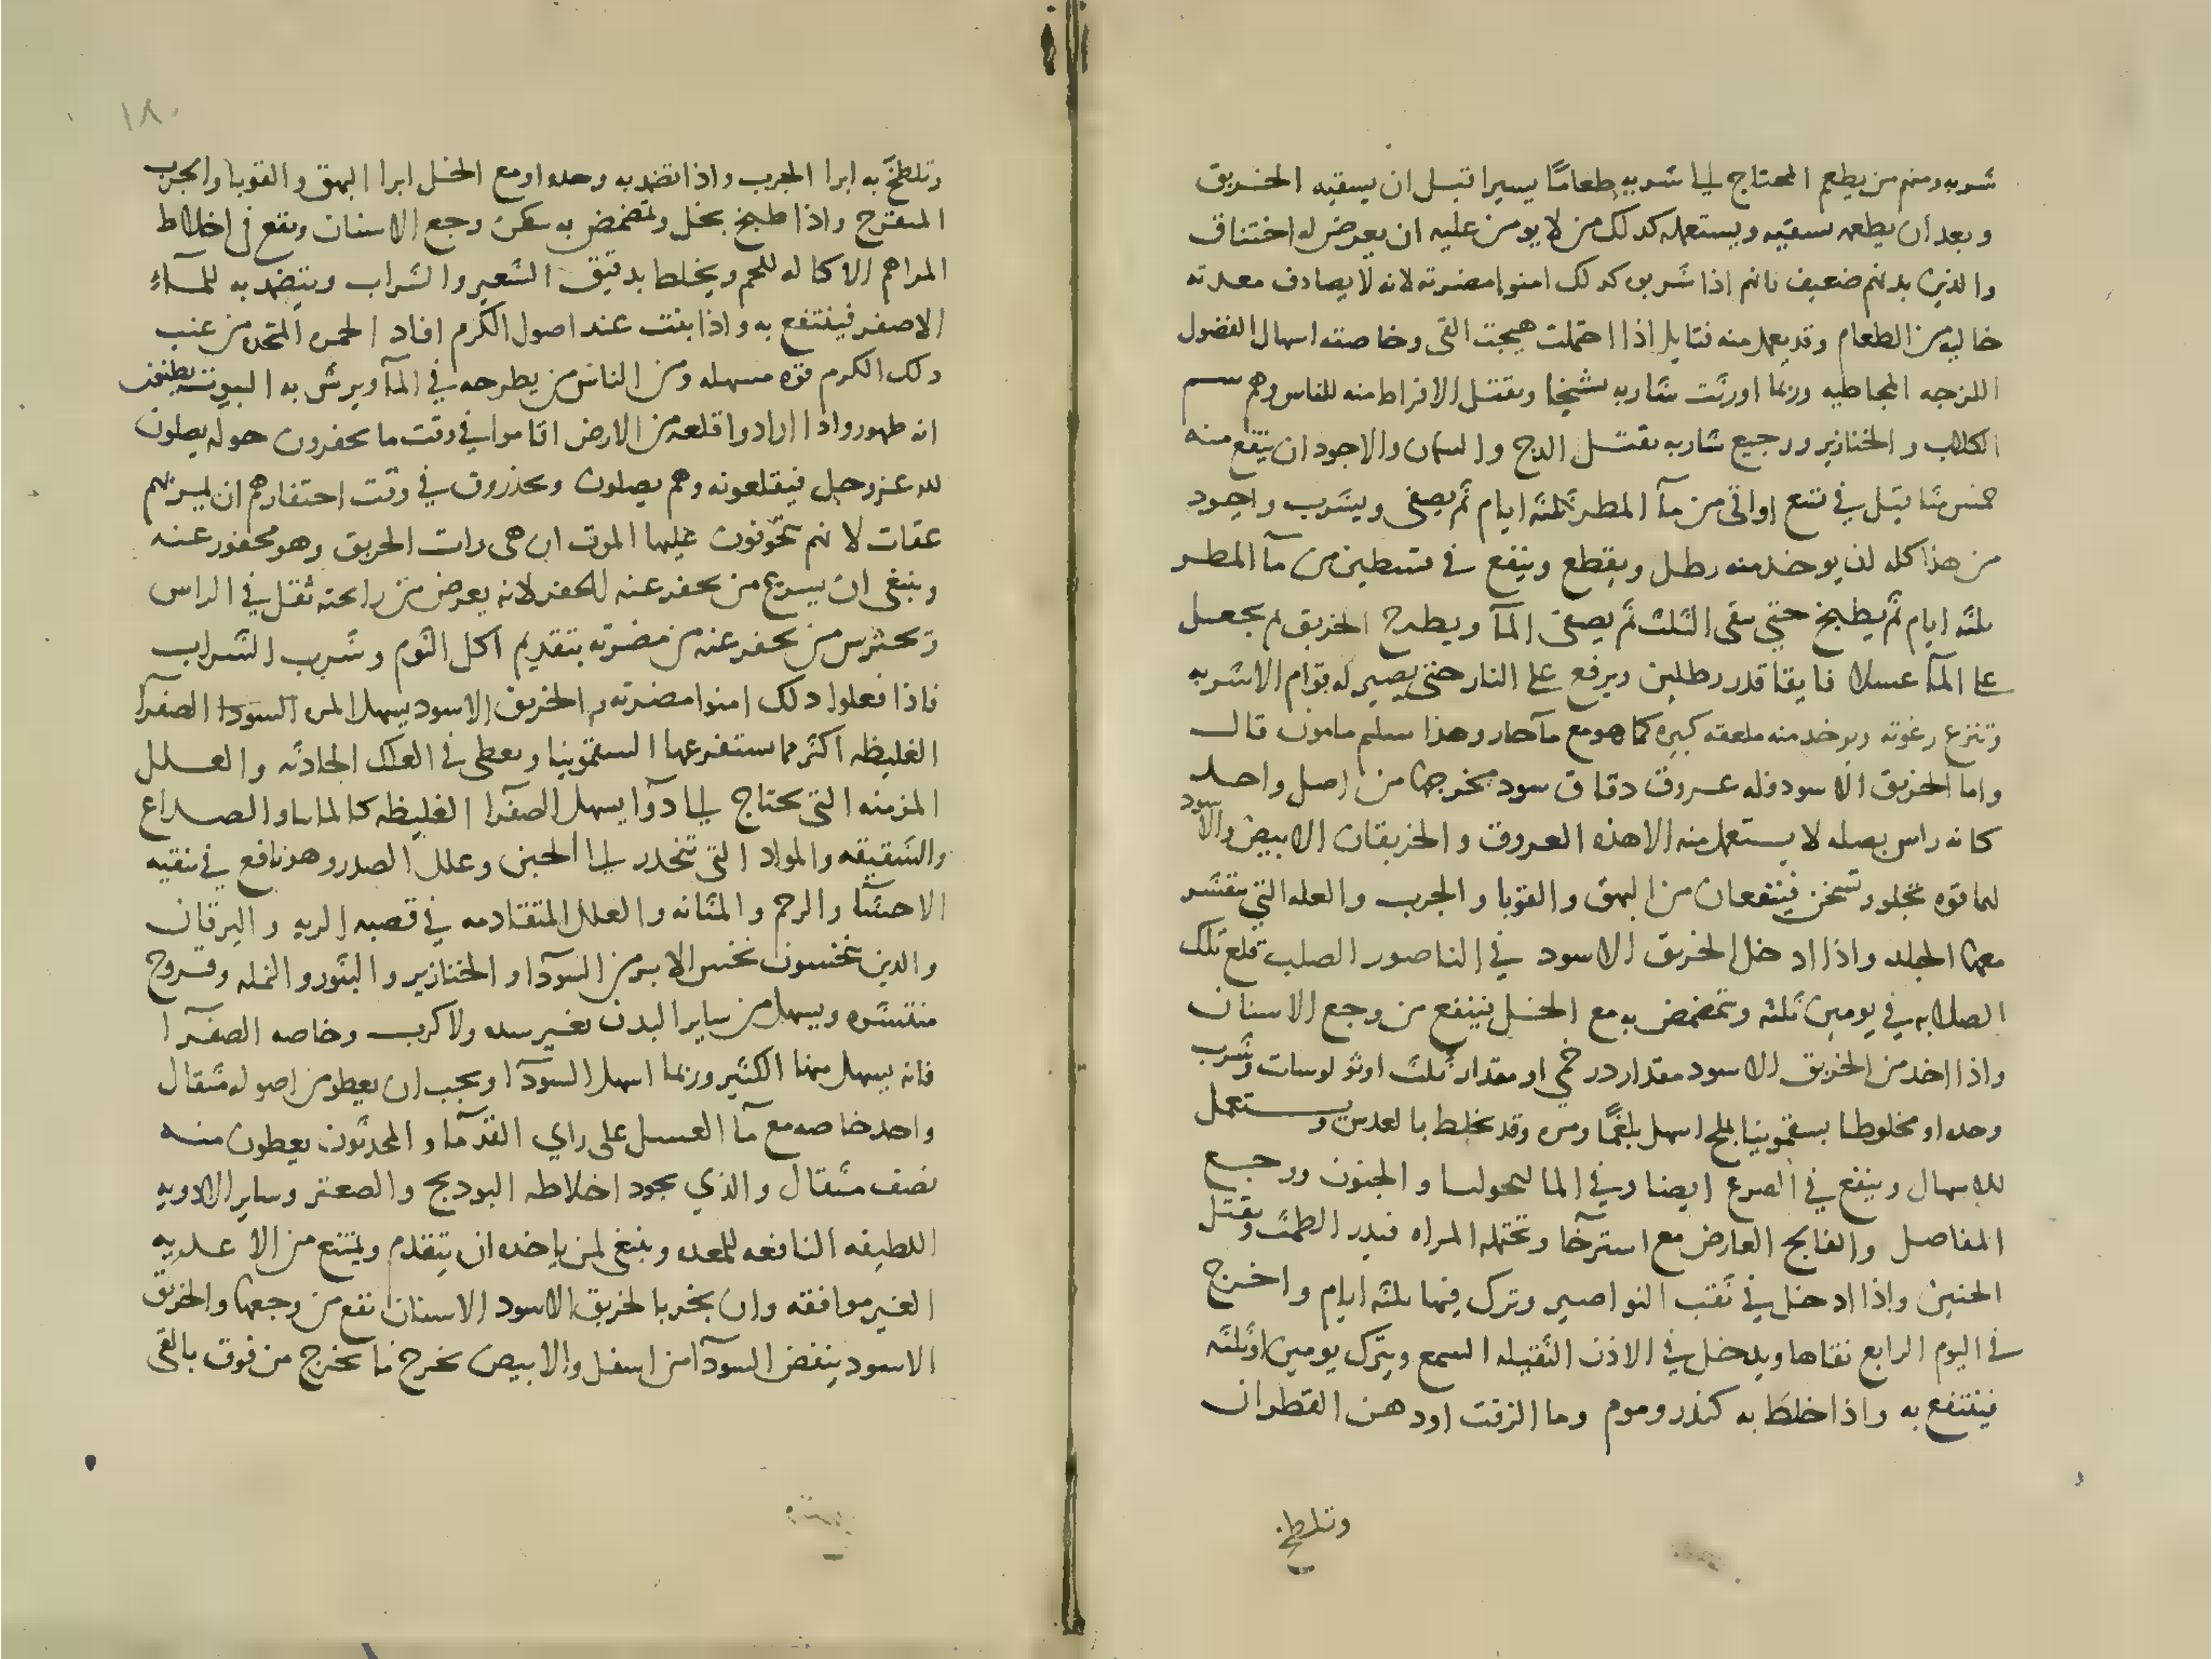 شربه ومنهم من يطعم المحتاج الى شربه طعامًا يسيرا قبل ان يسقيه الخربق
وبعد ان يطعمه يسقيه ويستعمله كذلك من لا يومن عليه ان يعرض له اختناق
والذين بدنهم ضعيف فانهم اذا شربوه كذلك امنوا مضرته لانه لا يصادف معدته
خاليه من الطعام وقد يعمل منه فتايل اذا احتملت هيجت القى وخاصته اسهال الفضول
اللزجه المخاطيه وربما اورثت شاربه تشنجا ويقتل الافراط منه للناس وهم سم
الكلاب والخنازير ورجيع شاربه يقتل الدج والسمان والاجود ان ينقع منه
خمس مثاقيل في تسع اواقى من مآ المطر ثلثه ايام ثم يصفى ويشرب واجود
من هذا كله ان يوخد منه رطل ويقطع وينقع فى قسطين من مآ المطر
ثلثه ايام ثم يطبخ حتى يبقى الثلث ثم يصفى المآ ويطرح الخربق ثم يجعل
على المآ عسلا فايقا قدر رطلين ويرفع على النار حتى يصير له قوام الاشربه
وتنزع رغوته ويوخد منه ملعقه كبيره كما هو مع مآ حار وهذا سليم مامون قال
واما الخربق الاسود فله عروق دقاق سود مخرجها من اصل واحد
كانه راس بصله لا يستعمل منه الا هذه العروق والخربقان الابيض والاسود
لهما قوه تجلو وتسخن فينتفعان من البهق والقوبا والجرب والعله التي يتقشر
معها الجلد واذا ادخل الخربق الاسود في الناصور الصلب قلع تلك
الصلابه في يومين ثلثه ويتمضمض به مع الخل فينفع من وجع الاسنان
واذا اخد من الخربق الاسود مقدار درخمي او مقدار ثلث اوثولوسات وشرب
وحده او مخلوطا بسقمونيا بالملح اسهل بلغمًا ومره وقد يخلط بالعدس ويستعمل
للاسهال وينفع في الصرع ايضا وفي المالنخوليا والجنون ووجع
المفاصل والفالج العارض مع استرخآ وتحتمله المراه فيدر الطمث ويقتل
الجنين واذا ادخل في ثقب النواصير وترك فيها ثلثه ايام واخرج
فى اليوم الرابع نقاها ويدخل في الاذن الثقيله السمع ويترك يومين او ثلثه
فينتفع به واذا خلط به كندر وموم وما الزفت او دهن القطران
وتلطخ
١٨٠
وتلطخ به ابرا الجرب واذا تضمد به وحده او مع الخل ابرا البهق والقوبا والجرب
المتقرح واذا طبخ بخل وتمضمض به سكن وجع الاسنان ويقع فى اخلاط
المراهم الاكاله للحم ويخلط بدقيق الشعير والشراب ويتضمد به للمآء
الاصفر فينتفع به واذا نبت عند اصول الكرم افاد الخمره المتخذه من عنب
ذلك الكرم قوه مسهله ومن الناس من يطرحه في المآ ويرش به البيوت يظنون
انه طهور واذا ارادوا قلعه من الارض اقاموا في وقت ما يحفرون حوله يصلون
لله عز وجل فيقتلعونه وهم يصلون ويحذرون في وقت احتفارهم ان تمر بهم
عقاب لانهم يتخوفون عليها الموت ان هى رات الخربق وهو محفور عنه
وينبغى ان يسرع من يحفر عنه الحفر لانه يعرض من رايحته ثقل في الراس
ويحترس من يحفر عنه من مضرته بتقديم اكل الثوم وشرب الشراب
فاذا فعلوا ذلك امنوا مضرته والخربق الاسود يسهل المره السودا الصفرآ
الغليظه اكثر مما يستفرعها السقمونيا ويعطى فى العلل الحادثه والعلل
المزمنه التى يحتاج الى دوآ يسهل الصفرآ الغليظه كالماليا والصداع
والشقيقه والمواد التى تنحدر الى العينين وعلل الصدر وهو نافع في تنقيه
الاحشآ والرحم والمثانه والعلل المتقادمه في قصبه الريه واليرقان
والذين يحسون بنخس الابر من السودآ او الخنازير والبثور والنمله وقروح
منتشره ويسهل من ساير البدن بغير شده ولا كرب وخاصه الصفرآ
فانه يسهل منها الكثير وربما اسهل السودآ ويجب ان يعطو من اصوله مثقال
واحد خاصه مع مآ العسل على راي القدمآ والمحدثون يعطون منه
نصف مثقال والذي يجود اخلاطه الفودنج والصعتر وساير الادويه
اللطيفه النافعه للمعده وينبغي لمن ياخذه ان يتقدم ويمتنع من الاغديه
الغير موافقه وان بخر بالخربق الاسود الاسنان نفع من وجعها والخربق
الاسود ينفض السودآ من اسفل والابيض يخرج ما يخرج من فوق بالقى